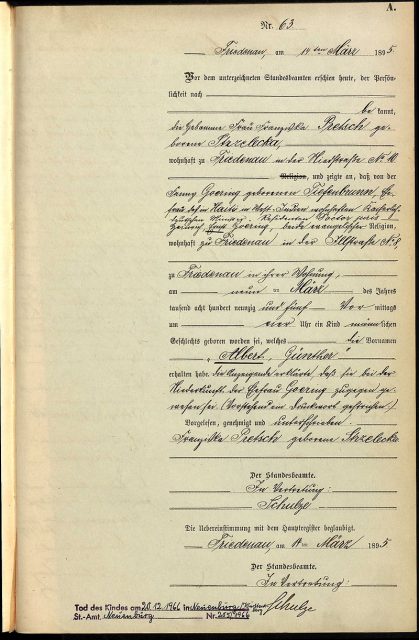 A.
Nr. 63
Friedenau, am 14ten März 1895
Vor dem unterzeichneten Standesbeamten erschien heute, der Persön-
lichkeit nach
be kannt,
die Hebamme Frau Franziska Pietsch ge-
borene Strzelecka,
wohnhaft zu Friedenau in der
Religion, und zeigte an, daß von der
Fanny Goering geborenen Tiefenbrunn, Ehe-
in wohnhaften Kaiserlich
deutschen Doctor juris
Heinrich Ernst Goering, beide evangelischer Religion,
wohnhaft zu Friedenau in der
zu Friedenau in ihrer Wohnung,
am neun ten März des Jahres
tausend acht hundert neunzig und fünf Vor mittags
um vier Uhr ein Kind männlichen
Geschlechts geboren worden sei, welches die Vornamen
„Albert Günther“
erhalten habe. Die Anzeigende erklärte, daß sie bei der
Niederkunft der Ehefrau Goering zugegen ge-
wesen sei. (Vorstehend ein Druckwort gestrichen.)
Vorgelesen, genehmigt und unterschrieben
Franziska Pietsch geborene Strzelecka
Der Standesbeamte.
In Vertretung:
Schulze
Die Uebereinstimmung mit dem Hauptregister beglaubigt.
Friedenau, am März 1895
Der Standesbeamte.
In Vertretung:
Schulze
Tod des Kindes am 20.12.1966 in Neuenbürg
St.-Amt Neuenbürg Nr. /1966